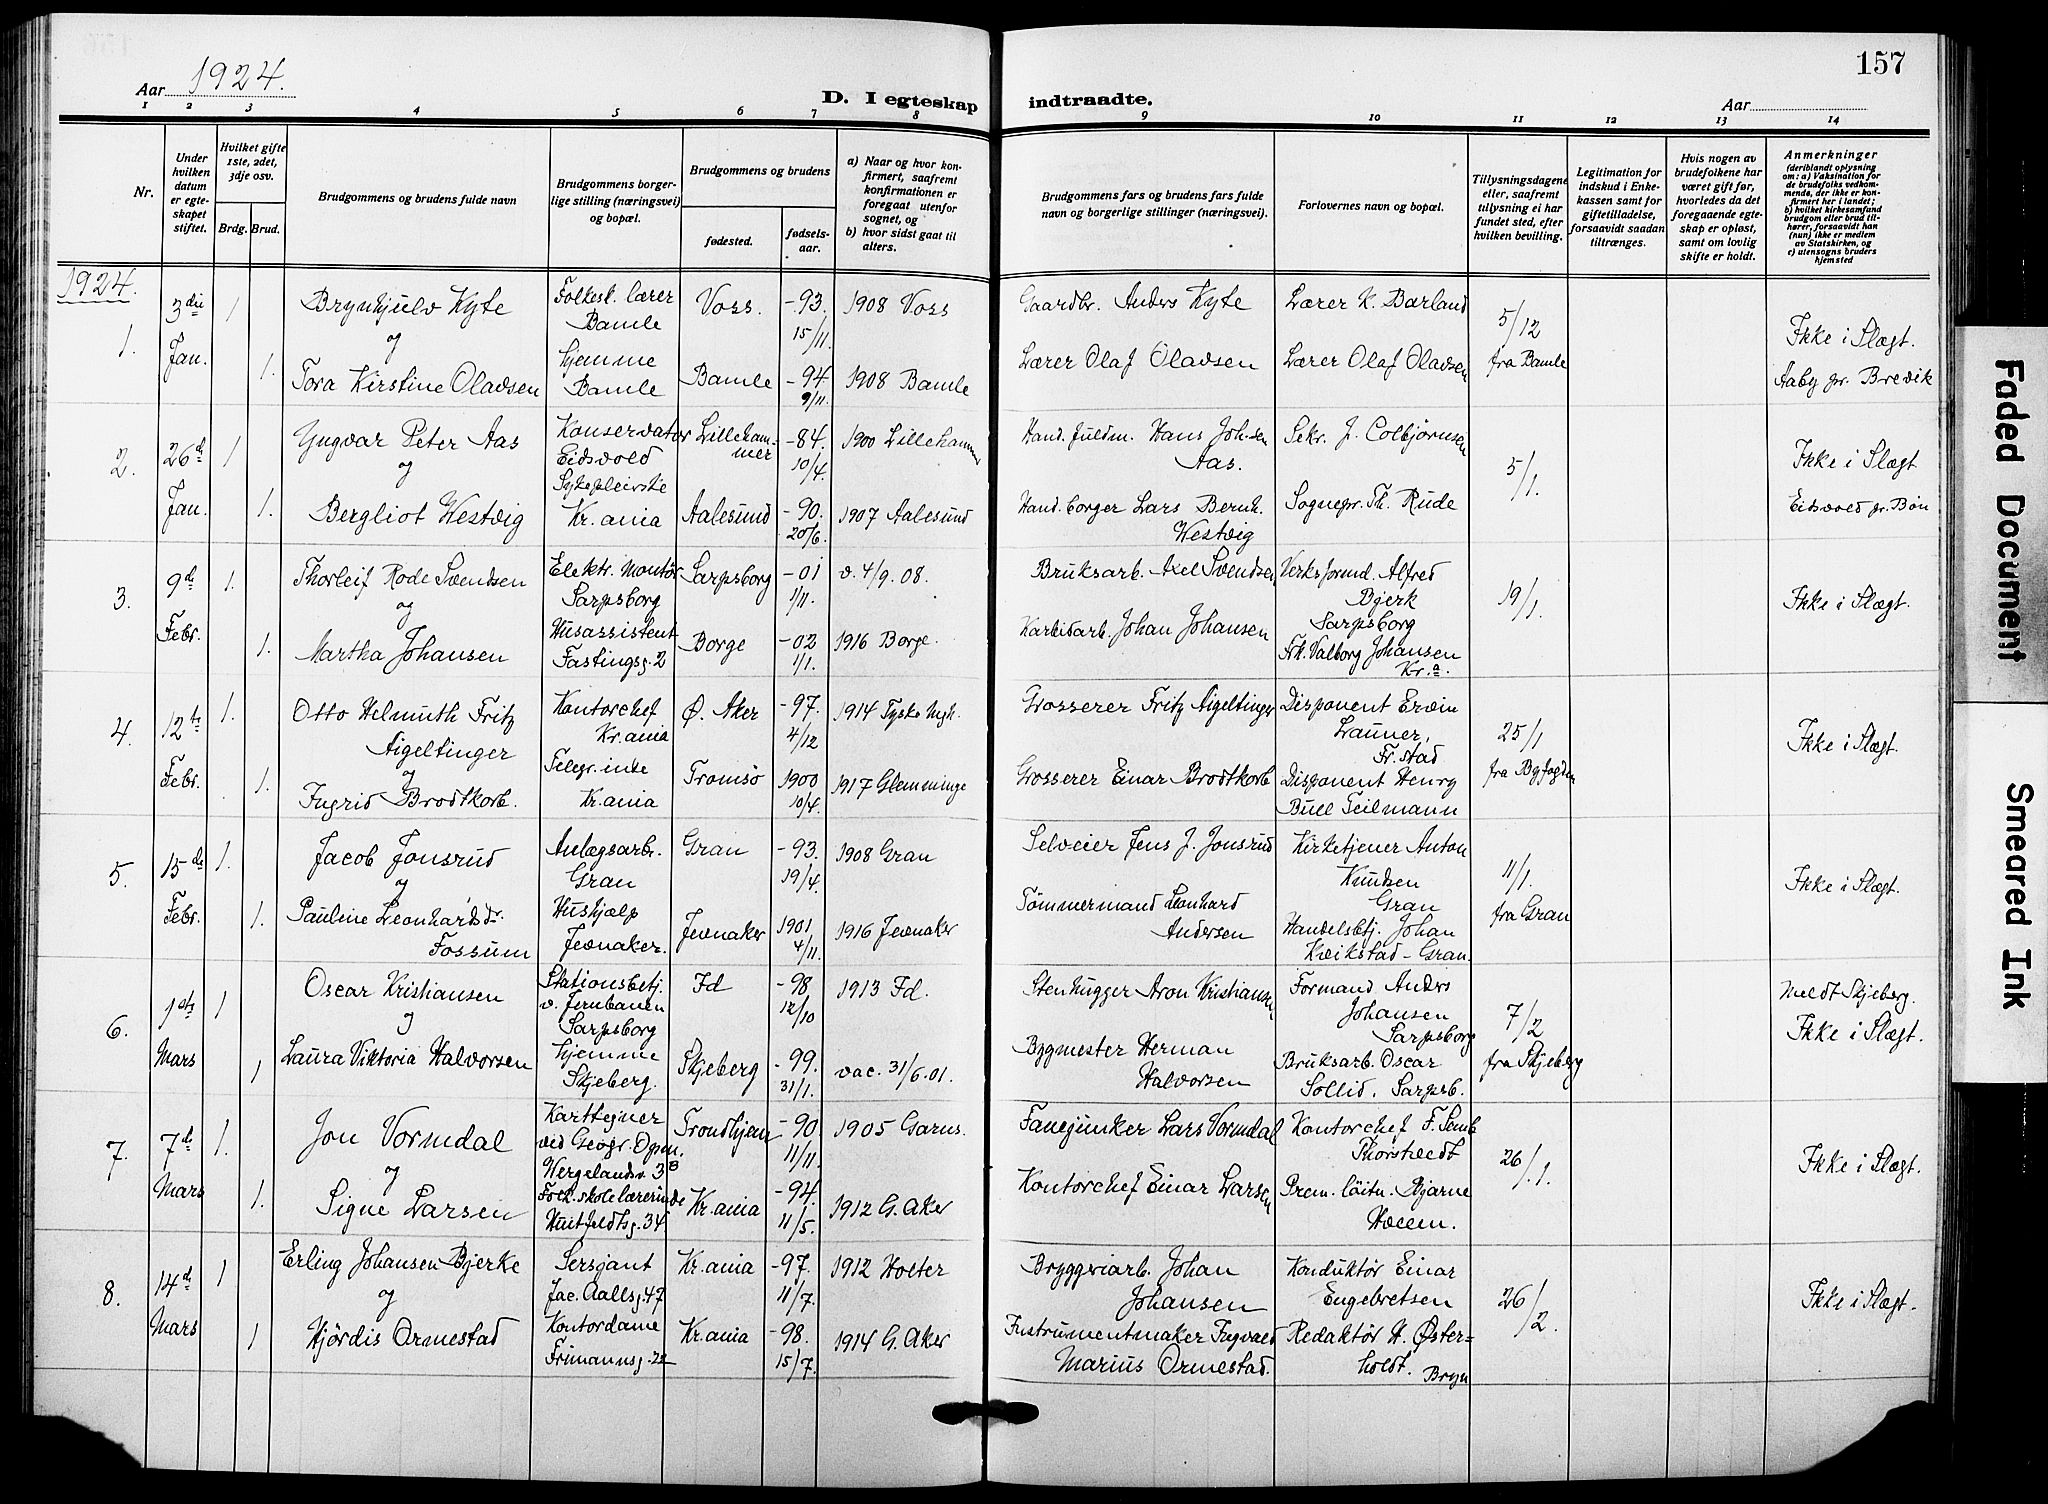 157
Aar 1924.
D. I egteskap indtraadte.
Aar
1 2 3 4 5 6 7 8 9 10 11 12 13 14
Nr.
Under hvilken datum er egteskapet stiftet.
Hvilket gifte 1ste, 2det, 3dje osv.
Brdg. Brud.
Brudgommens og brudens fulde navn
Brudgommens borgerlige stilling (næringsvei) og bopæl.
Brudgommens og brudens
fødested.
fødselsaar.
a) Naar og hvor konfirmert, saafremt konfirmationen er foregaat utenfor sognet, og
b) hvor sidst gaat til alters.
Brudgommens fars og brudens fars fulde navn og borgerlige stillinger (næringsvei).
Forlovernes navn og bopæl.
Tillysningsdagene eller, saafremt tillysning ei har fundet sted, efter hvilken bevilling.
Legitimation for indskud i Enkekassen samt for giftetilladelse, forsaavidt saadan tiltrænges.
Hvis nogen av brudefolkene har været gift før, hvorledes da det foregaaende egteskap er opløst, samt om lovlig skifte er holdt.
Anmerkninger (deriblandt oplysning om: a) Vaksination for de brudefolks vedkommende, der ikke er konfirmert her i landet; b) hvilket kirkesamfund brudgom eller brud tilhører, forsaavidt han (hun) ikke er medlem av Statskirken, og c) utensogns bruders hjemsted
1924.
1. 3die Jan. 1 Brynhjulv Kyte Folkesk. lærer Bamle Voss. -93. 15/11. 1908 Voss Gaardbr. Anders Kyte Lærer K. Barland 5/12 Ikke i Slægt.
og
1. Tora Kirstine Olavsen Hjemme Bamle Bamle -94 9/11. 1908 Bamle Lærer Olaf Olavsen Lærer Olaf Olavsen fra Bamle Aaby pr. Brevik
2. 26de Jan. 1 Yngvar Peter Aas Konservator Eidsvold Lillehammer -84. 10/4. 1900 Lillehammer Hand. fuldm. Hans Joh.sen Aas. Sekr. J. Colbjørnsen 5/1. Ikke i Slægt
og
1. Bergliot Westvig Sykepleirske Kr.ania Aalesund -90. 20/6. 1907 Aalesund Hand. borger Lars Bernh. Westvig Sognepr. Th. Rude Eidsvold pr. Bøn
3. 9de Febr. 1. Thorleif Rode Svendsen Elektr. Montør Sarpsborg Sarpsborg -01 1/11. v. 4/9. 08. Bruksarb. Axel Svendsen Verksformd. Alfred Bjerk Sarpsborg 19/1. Ikke i Slægt.
og
1. Martha Johansen Husassistent Fastingsg. 2 Borge -02 1/1. 1916 Borge. Karbidarb. Johan Johansen Frk. Valborg Johansen Kr.a.
4. 12te Febr. 1. Otto Helmuth Fritz Aigeltinger Kontorchef Kr.ania Ø. Aker -97. 4/12 1914 Tyske mgh. Grosserer Fritz Aigeltinger Disponent Erwin Launer, Fr.stad 25/1 Ikke i Slægt.
og
1. Ingrid Brodtkorb. Telegr.inde Kr.ania Tromsø 1900 10/4. 1917 Glemminge Grosserer Einar Brodtkorb Disponent Henry Bull Teilmann fra Byfogden
5. 15de Febr. 1. Jacob Jonsrud Anlægsarbr. Gran Gran -93. 19/4. 1908 Gran Selveier Jens J. Jonsrud Kirketjener Anton Knudsen Gran 11/1. Ikke i Slægt.
og
1. Pauline Leonhardsdr. Fossum Hushjælp Jevnaker. Jevnaker 1901 4/11. 1916 Jevnaker Tømmermand Leonhard Andersen Handelsbtj. Johan Kvikstad - Gran. fra Gran
6. 1ste Mars 1 Oscar Kristiansen Stationsbetj. v. Jernbanen Sarpsborg Id -98 12/10 1913 Id. Stenhugger Aron Kristiansen Formand Anders Johansen Sarpsborg 7/2 Meldt Skjeberg. Ikke i Slægt.
og
1 Laura Viktoria Halvorsen Hjemme Skjeberg. Skjeberg -99. 31/1. vac. 31/6. 01. Bygmester Herman Halvorsen Bruksarb. Oscar Sollid. Sarpsb. fra Skjeberg
7. 7de Mars 1. Jon Vormdal Karttegner ved Geogr. Opm. Wergelandsv. 3B Trondhjem -90. 11/11. 1905 Garns. Fanejunker Lars Vormdal Kontorchef F. Semb Thorstvedt 26/1. Ikke i Slægt.
og
1. Signe Larsen Folk.skolelærerinde Huitfeldtsg. 34 Kr.ania -94. 11/5. 1912 G. Aker Kontorchef Einar Larsen Prem. løitn. Bjarne
8. 14de Mars 1 Erling Johansen Bjerke Sersjant Jac. Aallsg. 47 Kr.ania -97. 11/7. 1912 Holter Bryggeriarb. Johan Johansen Konduktør Einar Engebretsen 26/2. Ikke i Slægt.
og
1 Hjördis Ormestad Kontordame Frimannsg. 22 Kr.ania -98. 15/7. 1914 G. Aker Instrumentmaker Ingvald Marius Ormestad. Redaktør H. Østerholdt. Bryn
Faded Document
Smeared Ink